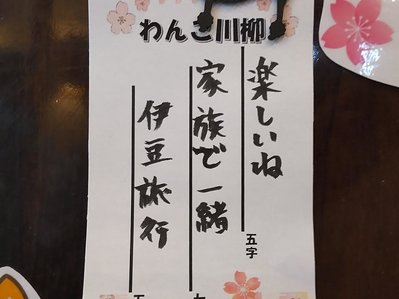 わんこ川柳
楽しいね
五字
家族で一緒
伊豆旅行